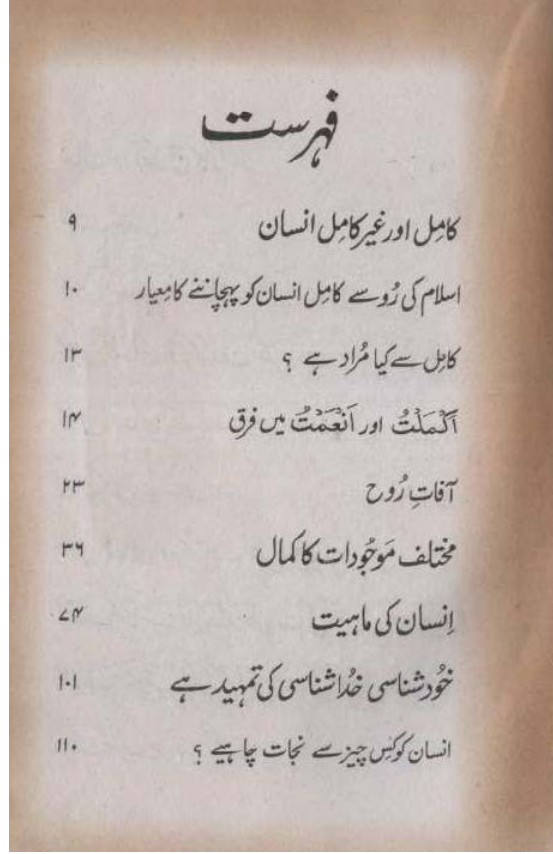 فہرست
کامِل اور غیر کامِل انسان ۹
اسلام کی رُو سے کامِل انسان کو پہچاننے کا مِعیار ۱۰
کامِل سے کیا مُراد ہے ؟ ۱۳
اَکْمَلْتُ اور اَنْعَمْتُ میں فرق ۱۴
آفاتِ رُوح ۲۳
مختلف مَوجُودات کا کمال ۳۶
اِنسان کی ماہیت ۷۴
خُود شناسی خُدا شناسی کی تمہید ہے ۱۰۱
انسان کو کِس چیز سے نجات چاہیے ؟ ۱۱۰